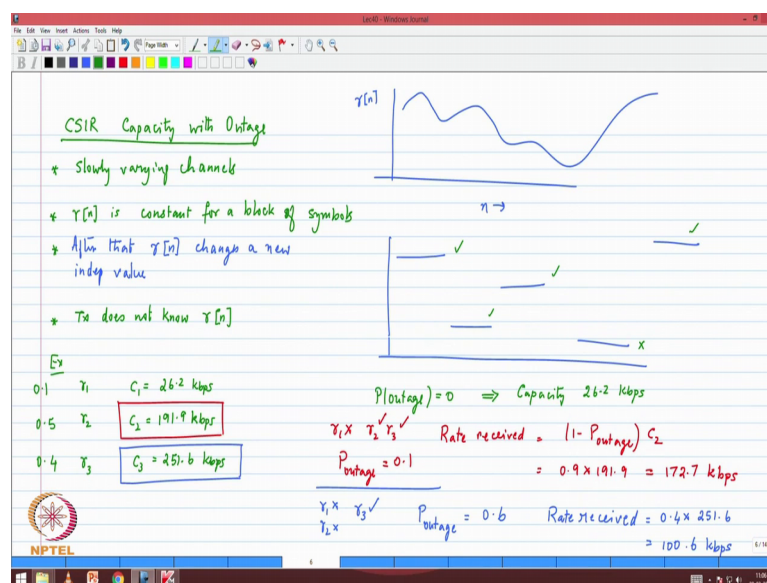 Lec40 - Windows Journal
File Edit View Insert Actions Tools Help
Page Width
B I
CSIR Capacity with Outage
* Slowly varying channels
* γ[n] is constant for a block of symbols
* After that γ[n] changes a new
indep value
* Tx does not know γ[n]
Ex
0.1 γ1 C1 = 26.2 kbps
0.5 γ2 C2 = 191.9 kbps
0.4 γ3 C3 = 251.6 kbps
γ[n]
n →
✓ ✓ ✓ ✓ x
P(outage) = 0 ⇒ Capacity 26.2 kbps
γ1 x γ2 ✓ γ3 ✓ Rate received = (1 - Poutage) C2
Poutage = 0.1 = 0.9 x 191.9 = 172.7 kbps
γ1 x γ3 ✓ Poutage = 0.6 Rate received = 0.4 x 251.6
γ2 x = 100.6 kbps
NPTEL
6
6/14